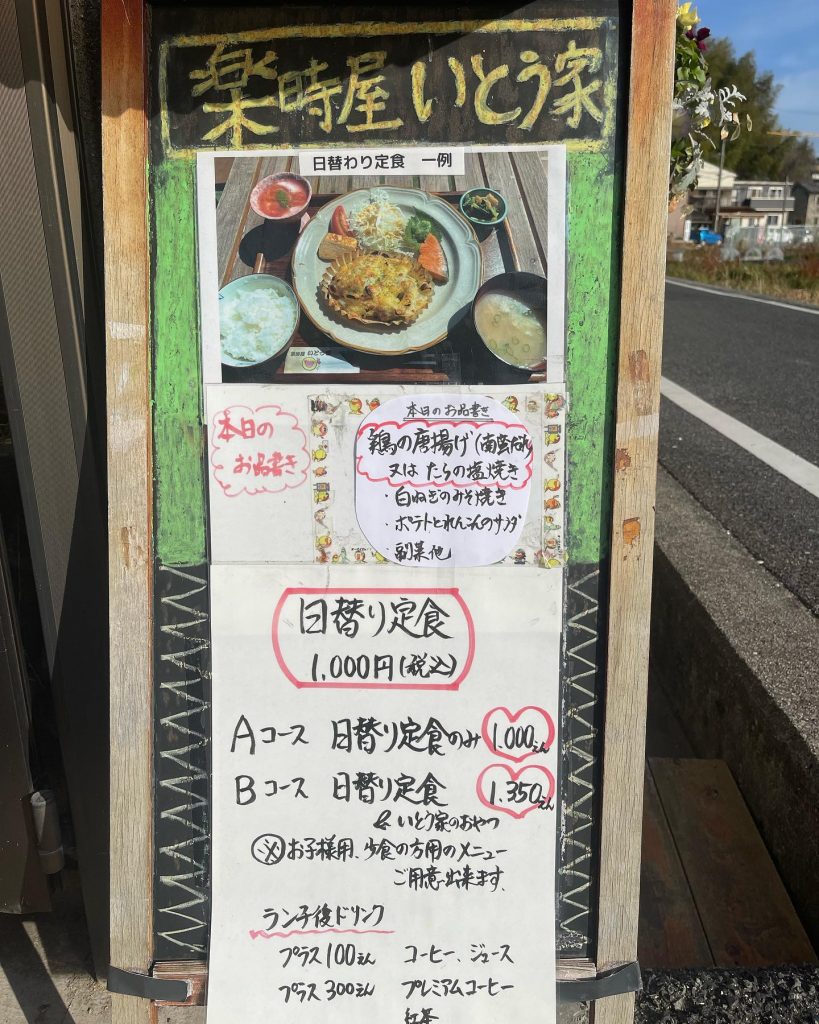 楽時屋 いとう家
日替わり定食 一例
本日の
お品書き
本日のお品書き
鶏の唐揚げ(南蛮だれ)
又は たらの塩焼き
・白ねぎのみそ焼き
・ポテトとれんこんのサラダ
副菜他
日替り定食
1,000円(税込)
Aコース 日替り定食のみ 1.000えん
Bコース 日替り定食 1.350えん
& いとう家のおやつ
※お子様用、少食の方用のメニュー
ご用意出来ます。
ランチ後ドリンク
プラス100えん コーヒー、ジュース
プラス300えん プレミアムコーヒー
紅茶